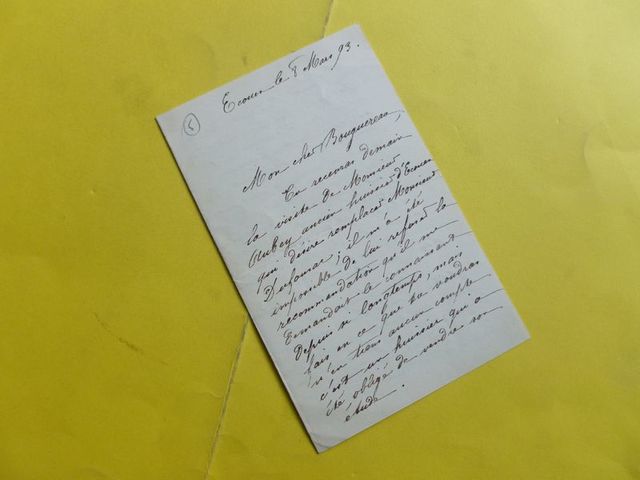 5
Ecouen le 8 Mars 93.
Mon cher Bouguereau,
Tu recevras demain
la visite de Monsieur
Aubey ancien huissier d'Ecouen
qui désire remplacer Monsieur
Dufomar; il m'a été
impossible de lui refuser la
recommandation qu'il me
demandait le connaissant
depuis si longtemps, mais
fais en ce que tu voudras
n'en tiens aucun compte
c'est un huissier qui a
été obligé de vendre son
étude.